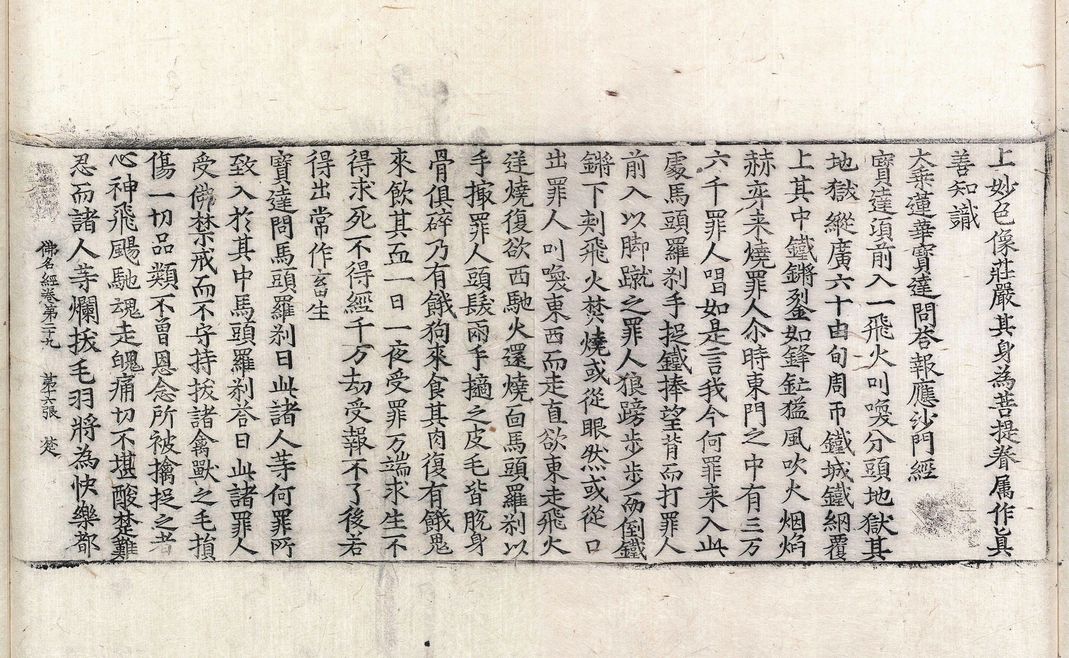 上妙色像莊嚴其身為菩提眷属作真
善知識
大乗蓮華寶達問荅報應沙門經
寶達頃前入一飛火叫喚分頭地獄其
地獄縱廣六十由旬周帀鐵城鐵網覆
上其中鐵鏘𨦣如鋒釯猛風吹火烟焰
赫弈来燒罪人尒時東門之中有三万
六千罪人唱如是言我今何罪来入此
處馬頭羅刹手捉鐵捧望背而打罪人
前入以脚蹴之罪人狼蹄步步而倒鐵
鏘下刾飛火焚燒或從眼然或從口
出罪人叫喚東西而走直欲東走飛火
逆燒復欲西馳火還燒面馬頭羅刹以
手㨨罪人頭髮兩手撾之皮毛皆脫身
骨俱碎乃有餓狗來食其肉復有餓鬼
來飲其血一日一夜受罪万端求生不
得求死不得經千万劫受報不了後若
得出常作畜生
寶達問馬頭羅刹曰此諸人等何罪所
致入於其中馬頭羅刹荅曰此諸罪人
受佛禁戒而不守持拔諸禽獸之毛損
傷一切品類不曾恩念所被擒捉之者
心神飛颺馳魂走魄痛切不堪酸楚難
忍而諸人等爛拔毛羽將為快樂都
佛名經卷第二九 第六張 楚